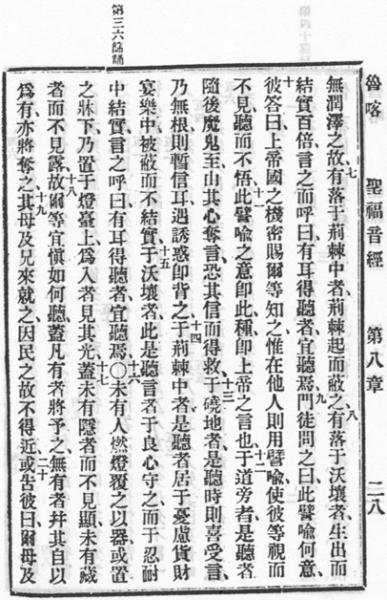 魯喀 聖福音經 第八章 二八
七 八
無潤澤之故有落于荊棘中者荊棘起而蔽之有落于沃壤者生出而
九
結實百倍言之而呼曰有耳得聽者宜聽焉門徒問之曰此譬喻何意
十
彼答曰上帝國之機密賜爾等知之惟在他人則用譬喻使彼等視而
十一 十二
不見聽而不悟此譬喻之意卽此種卽上帝之言也于道旁者是聽者
十三
隨後魔鬼至由其心奪言恐其信而得救于磽地者是聽時則喜受言
十四
乃無根則暫信耳遇誘惑卽背之于荊棘中者是聽者居于憂慮貨財
十五
宴樂中被蔽而不結實于沃壤者此是聽言者于良心守之而于忍耐
十六
中結實言之呼曰有耳得聽者宜聽焉○未有人燃燈覆之以器或置
十七
之牀下乃置于燈臺上爲入者見其光蓋未有隱者而不見顯未有藏
十八
者而不見露故爾等宜愼如何聽蓋凡有者將予之無有者幷其自以
十九 二十
爲有亦將奪之其母及兄來就之因民之故不得近或告彼曰爾母及
第三六誌誦